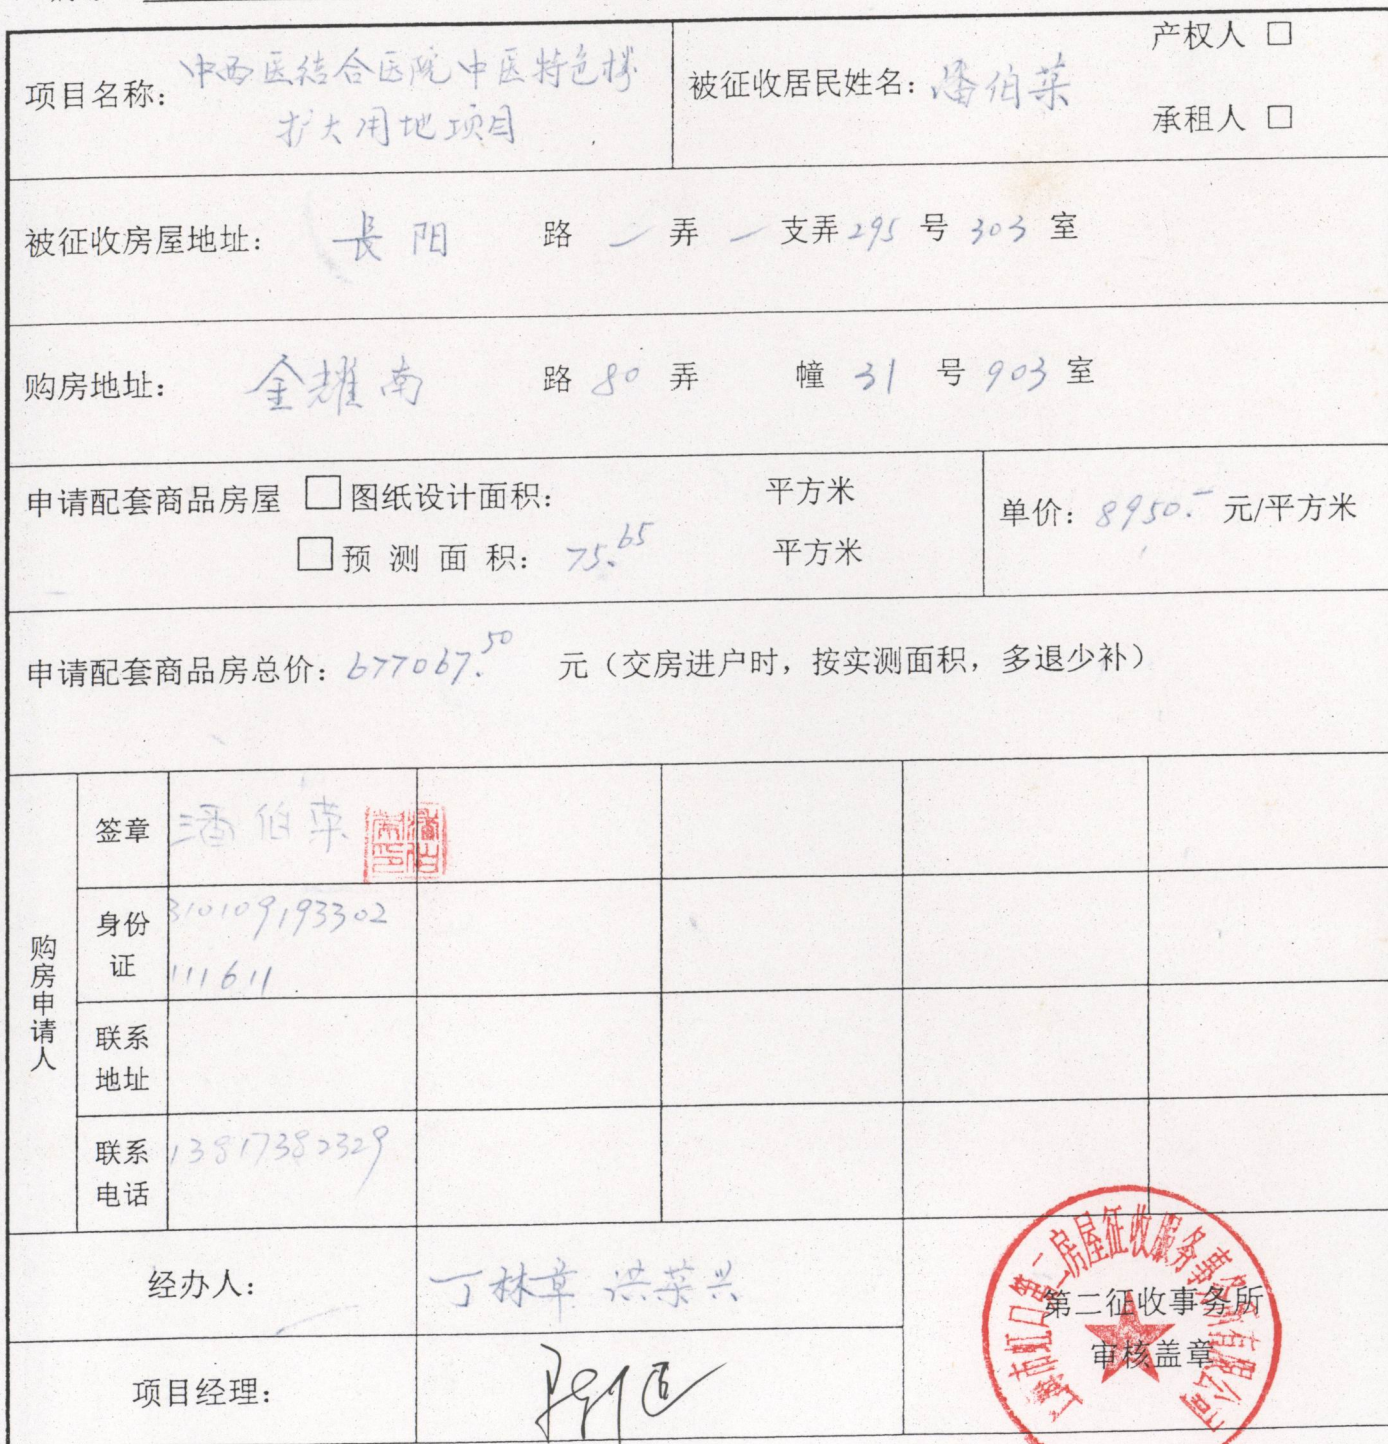 项目名称：中西医结合医院中医特色楼
扩大用地项目
被征收居民姓名：潘伯荣
产权人 □
承租人 □
被征收房屋地址： 長阳 路 一 弄 一 支弄 295 号 303 室
购房地址： 金耀南 路 80 弄 幢 31 号 903 室
申请配套商品房屋 □图纸设计面积： 平方米
□预 测 面 积： 75.65 平方米
单价：8950.- 元/平方米
申请配套商品房总价：677067.50 元（交房进户时，按实测面积，多退少补）
购房申请人
签章 潘伯荣
潘伯荣印
身份证 310109193302
111611
联系地址
联系电话 13817382329
经办人： 丁林章 洪荣兴
项目经理：
上海市虹口第二房屋征收服务事务所有限公司
第二征收事务所
审核盖章